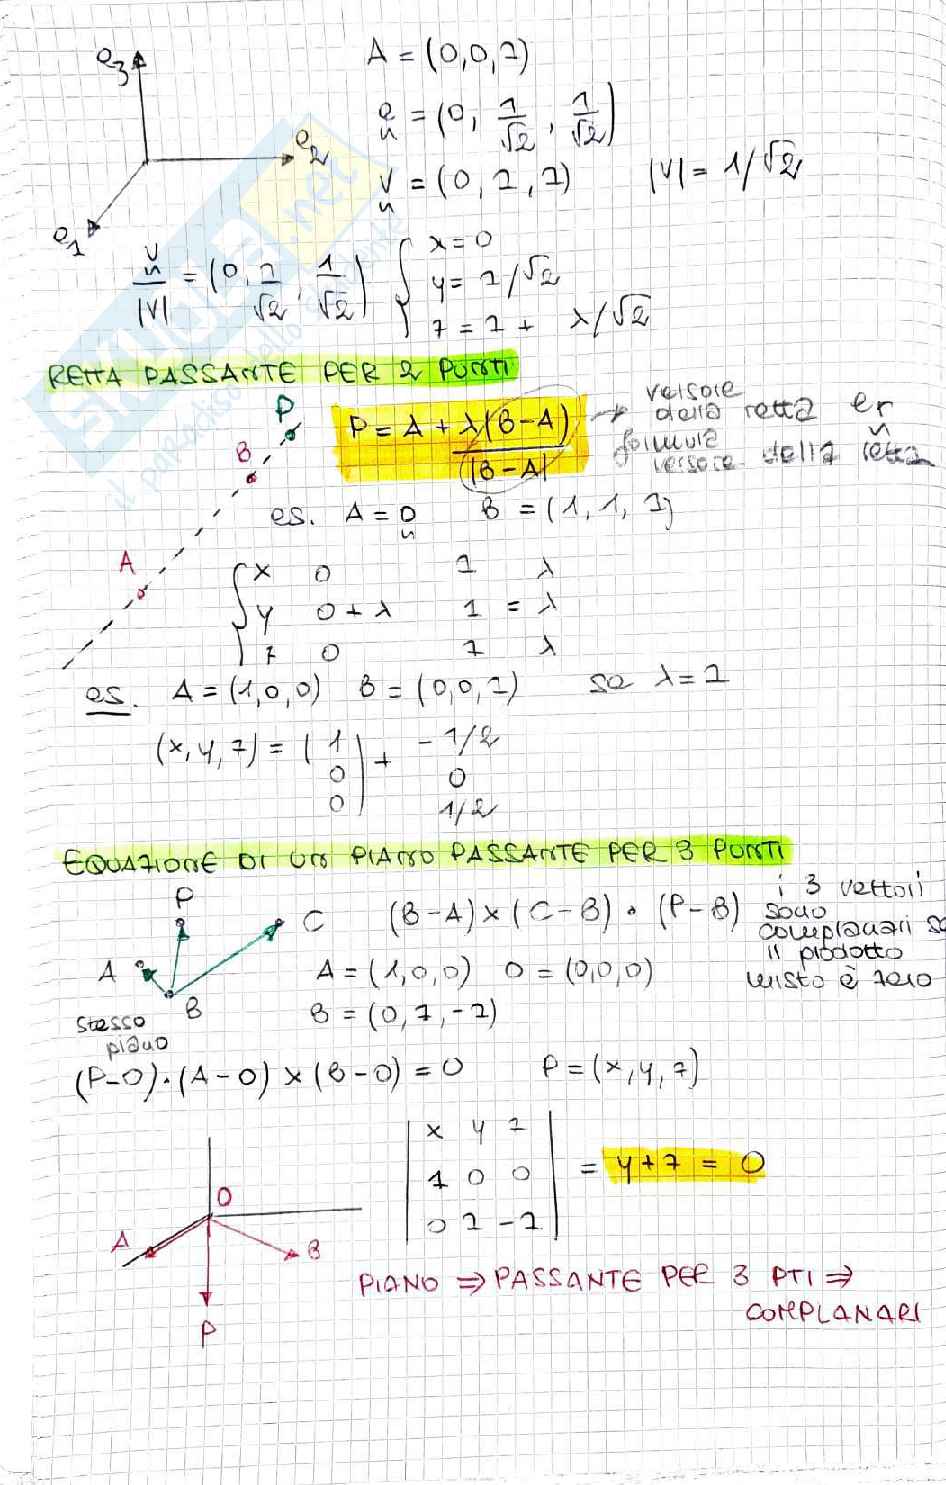 e3
e2
e1
A = (0,0,1)
e = (0, 1/√2, 1/√2)
v = (0, 1, 1) |v| = 1/√2
v/|v| = (0, 1/√2, 1/√2) { x = 0
y = 1/√2
z = 1 + λ/√2
RETTA PASSANTE PER 2 PUNTI
P
B
A
P = A + λ(B-A)/|B-A| → versore
della retta er
formula
versore della retta
es. A = 0 B = (1, 1, 1)
{ x 0 1 λ
y 0 + λ 1 = λ
z 0 1 λ
es. A = (1,0,0) B = (0,0,1) se λ = 1
(x, y, z) = (1 0 0) + -1/2
0
1/2
EQUAZIONE DI UN PIANO PASSANTE PER 3 PUNTI
P
C
A
B
stesso
piano
(B-A) × (C-B) • (P-B) i 3 vettori
sono
complanari se
il prodotto
misto è zero
A = (1,0,0) O = (0,0,0)
B = (0, 1, -1)
(P-O)•(A-O) × (B-O) = 0 P = (x, y, z)
| x y z |
| 1 0 0 | = y + z = 0
| 0 1 -1 |
O
A
B
P
PIANO ⇒ PASSANTE PER 3 PTI ⇒
COMPLANARI
skuola.net
il paradiso dello studente